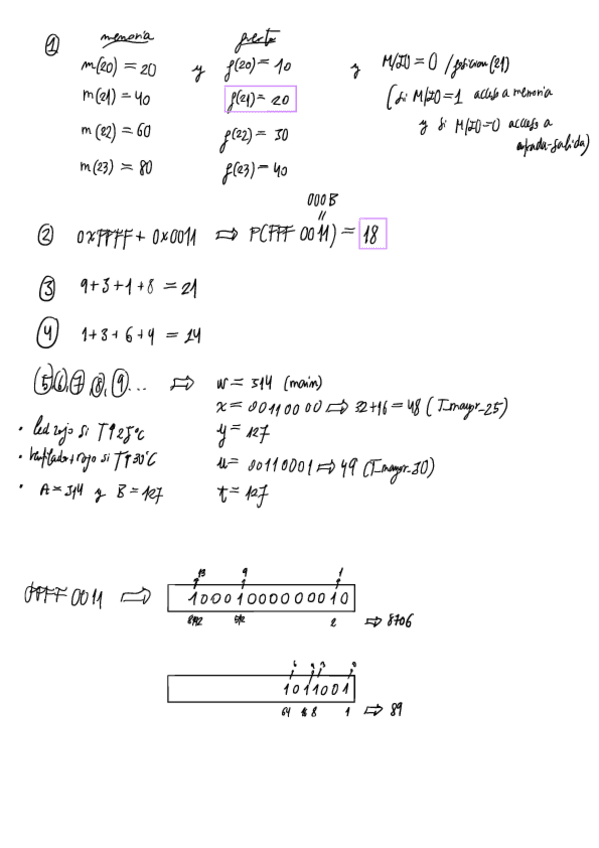 ① memoria puerto
m(20) = 20 y p(20) = 10 y M/IO = 0 / posicion (21)
m(21) = 40 p(21) = 20 (si M/IO=1 acceso a memoria
m(22) = 60 p(22) = 30 y si M/IO=0 acceso a
m(23) = 80 p(23) = 40 entrada-salida)
000B
"
② 0xFFFF + 0x0011 ⇒ P(FFF 0011) = 18
③ 9+3+1+8 = 21
④ 1+3+6+4 = 14
⑤,⑥,⑦,⑧,⑨... ⇒ w = 314 (main)
x = 00110000 ⇒ 32+16 = 48 (T_mayor_25)
• led rojo si T↑25°C y = 127
• ventilador + rojo si T↑30°C u = 00110001 ⇒ 49 (T_mayor_30)
• A = 314 y B = 127 t = 127
13 9 1
0FFFF 0011 ⇒ 10001000000010
8192 512 2 ⇒ 8706
6 4 3 0
1011001
64 16 8 1 ⇒ 89